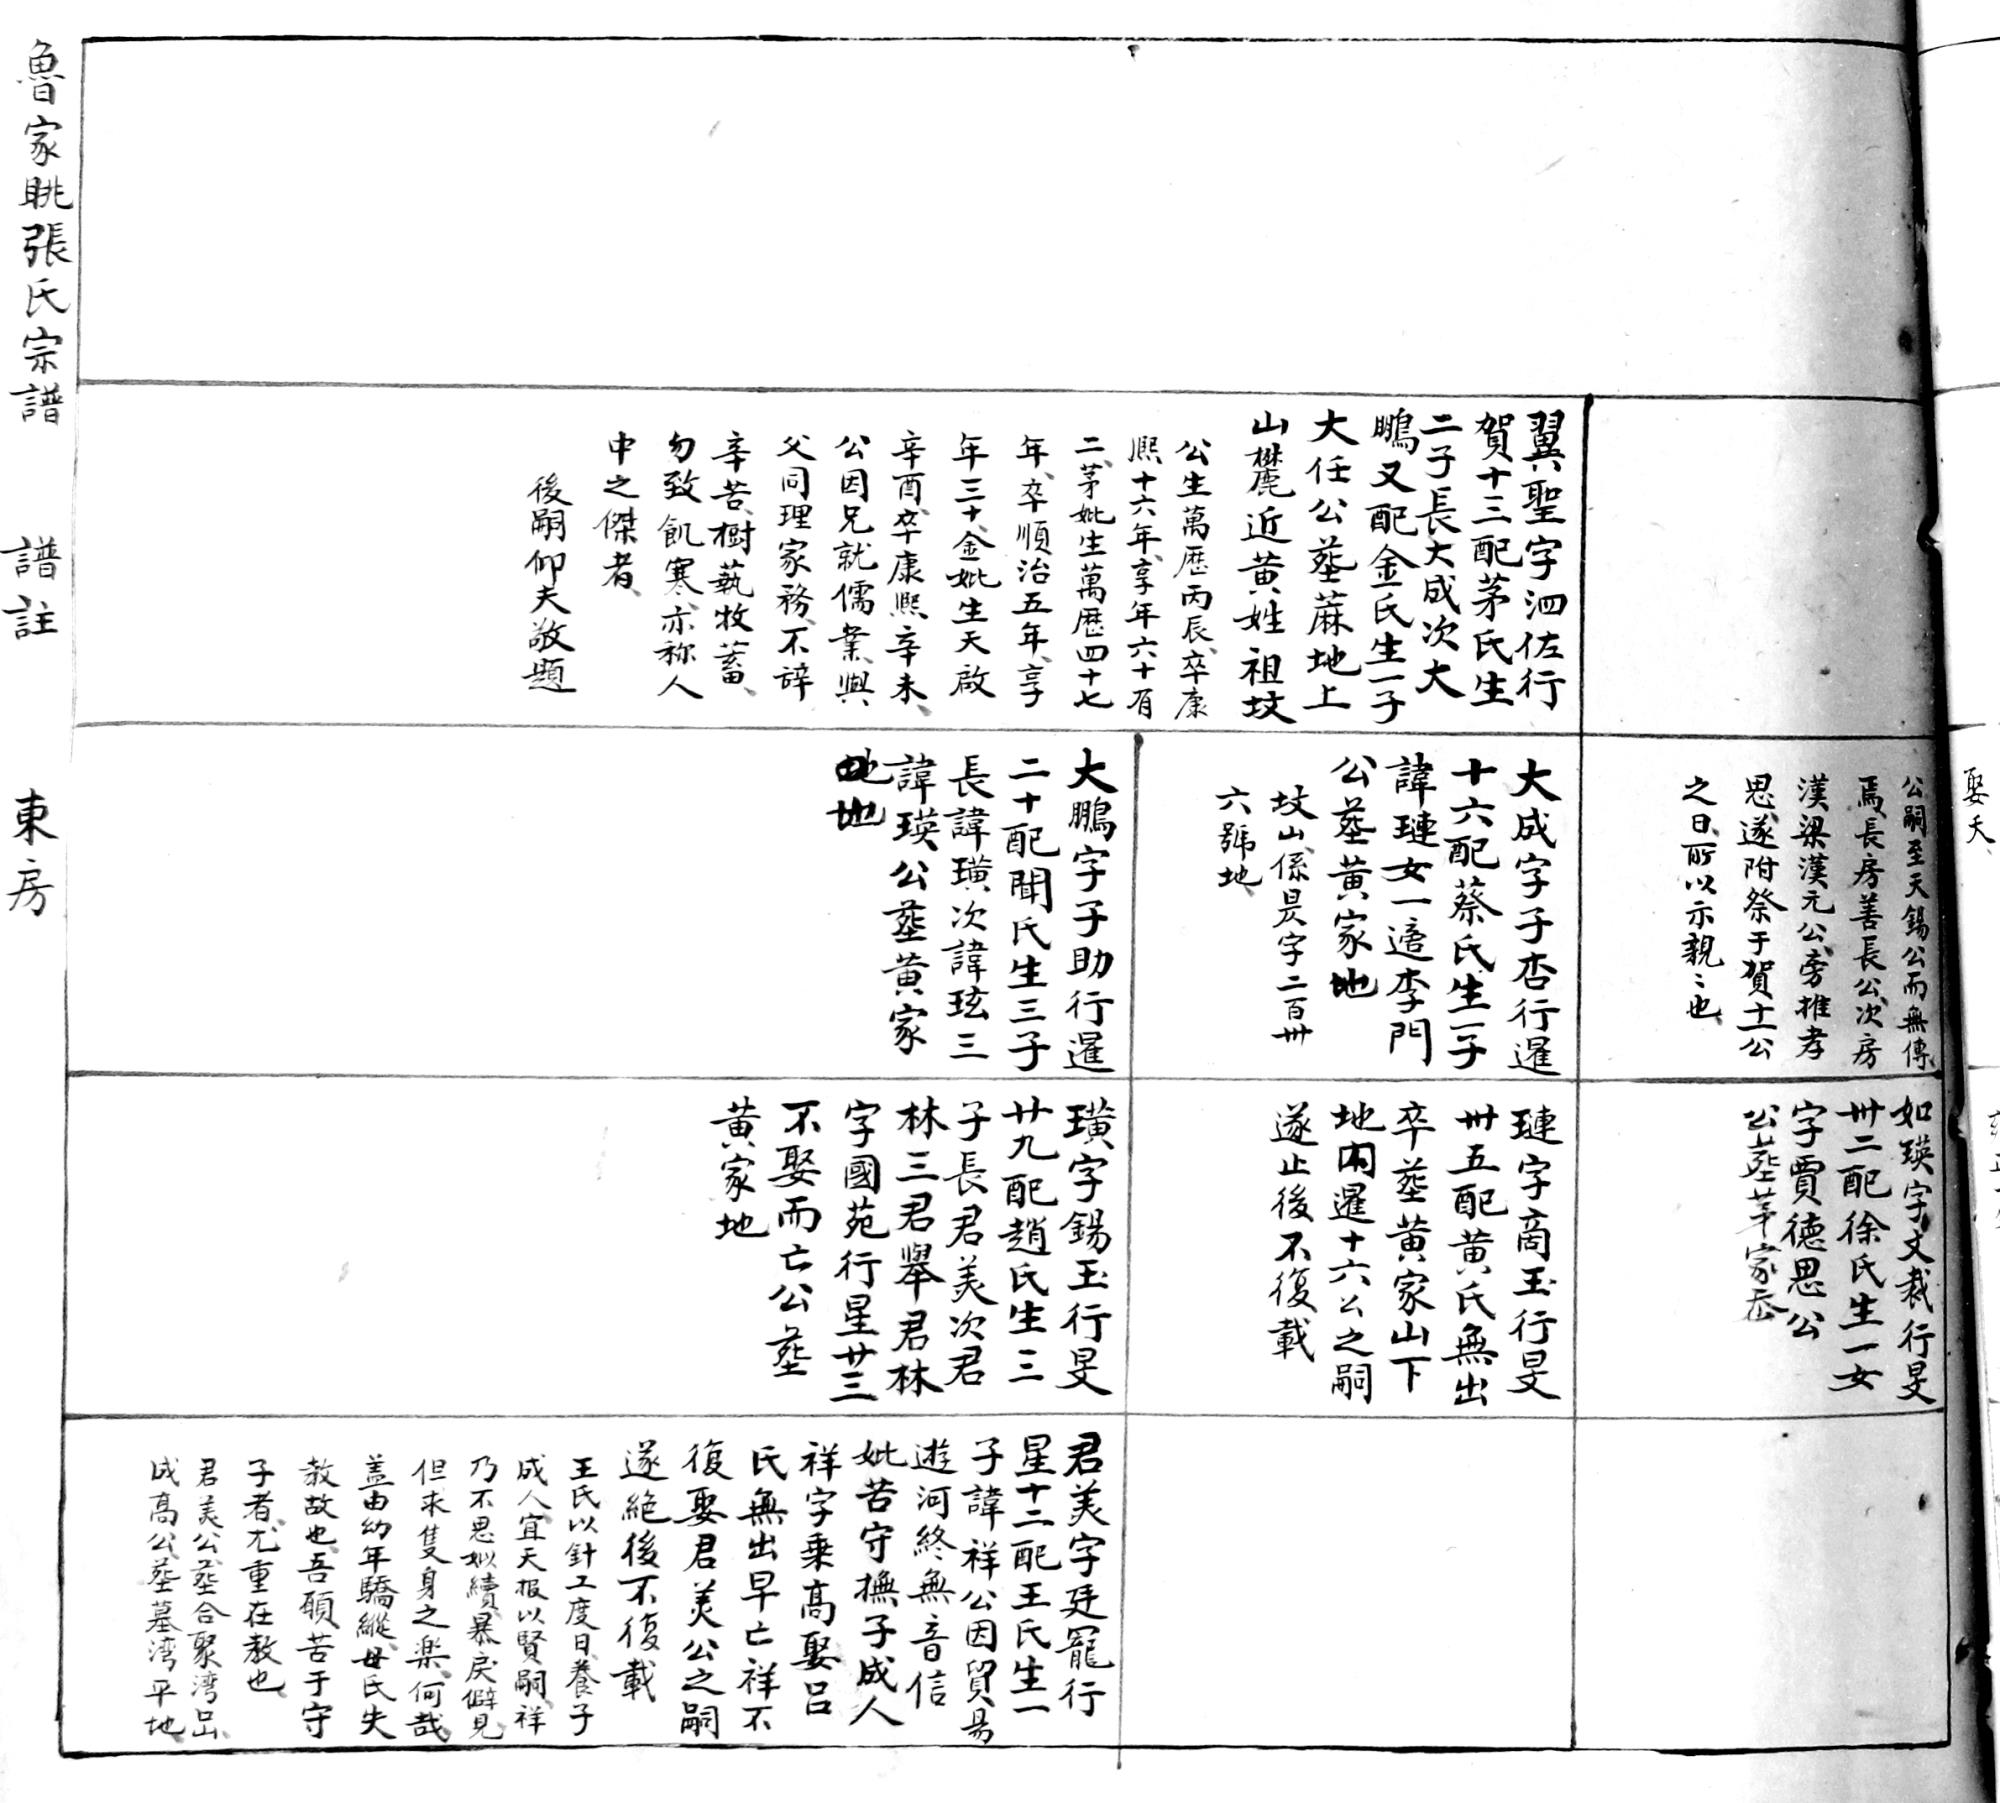 娶夭
公嗣至天錫公而無傳
焉長房善長公次房
漢梁漢元公旁推孝
思遂附祭于賀十一公
之日所以示親〻也
如瑛字文裁行旻
卅二配徐氏生一女
字賈德思公
公葬茅家岙
翼聖字泗佐行
賀十三配茅氏生
二子長大成次大
鵬又配金氏生一子
大任公葬蔴地上
山麓近黄姓祖坟
公生萬歷丙辰卒康
熙十六年享年六十有
二茅妣生萬歷四十七
年卒順治五年享
年三十金妣生天啟
辛酉卒康熙辛未
公因兄就儒業與
父同理家務不辞
辛苦樹藝牧蓄
勿致飢寒亦称人
中之傑者
後嗣仰夫敬題
大成字子杏行暹
十六配蔡氏生一子
諱璉女一適李門
公葬黄家地
坟山係昃字二百卅
六號地
璉字商玉行旻
卅五配黄氏無出
卒葬黄家山下
地内暹十六公之嗣
遂止後不復載
大鵬字子助行暹
二十配聞氏生三子
長諱璜次諱玹三
諱瑛公葬黄家
地
璜字錫玉行旻
廿九配趙氏生三
子長君美次君
林三君舉君林
字國苑行星廿三
不娶而亡公葬
黄家地
君美字廷寵行
星十二配王氏生一
子諱祥公因貿易
遊河終無音信
妣苦守撫子成人
祥字乗高娶呂
氏無出早亡祥不
復娶君美公之嗣
遂絶後不復載
王氏以針工度日養子
成人宜天报以賢嗣祥
乃不思姒續暴戾僻見
但求隻身之楽何哉
盖由幼年驕縱母氏失
教故也吾願苦于守
子者尤重在教也
君美公葬合聚湾呂
成高公葬墓湾平地
魯家眺張氏宗譜 譜註 東房